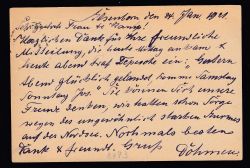 den 24. Juni 1921.
Sehr geehrte Frau
Herzlichen Dank für Ihre freundliche
Mitteilung, die heute Mittag ankam &
heute abend traf Depesche ein: „Gestern
Abend glücklich gelandet komme Samstag
Sonntag
Sie können Sich unsere
Freude denken, wir hatten schon Sorge
wegen des ungewöhnlich starken Sturmes
auf der Nordsee. Nochmals besten
Dank & freundl. Gruß
Böhmer